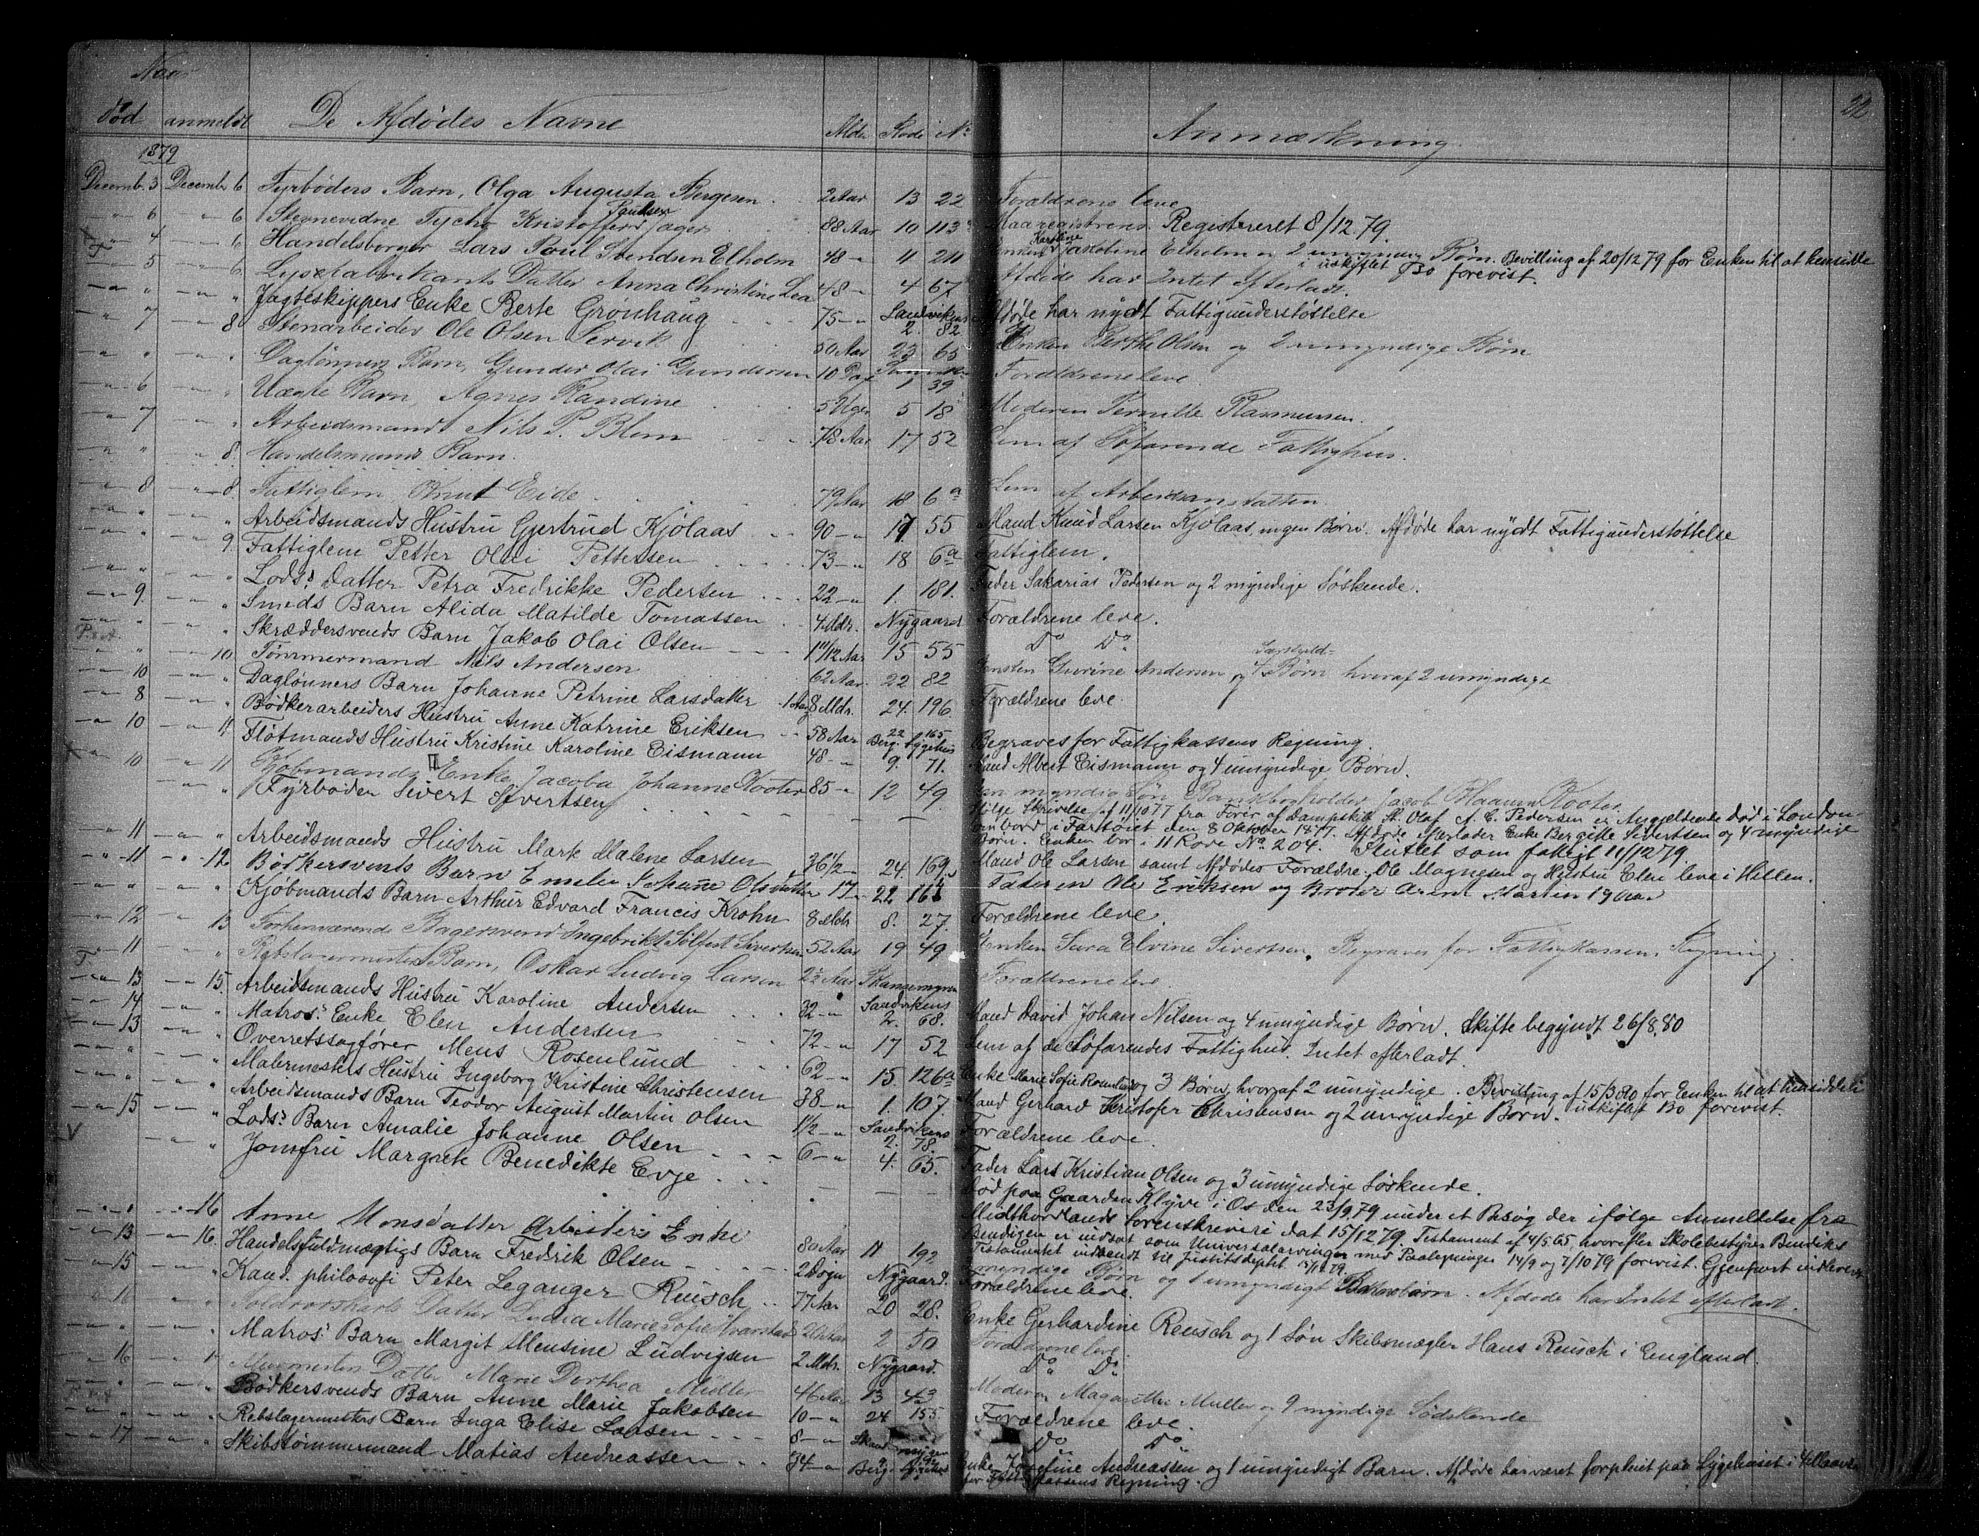 Naar
22
død anmeldt De Afdødes Navne Alder Rode No Anmærkning
1879
Decemb. 3 Decemb 6 Fyrbøders Barn, Olga Augusta Bergesen 2 Aar 13 22 Forældrene leve
Poulsen
" 6 " 6 Stevnevidne Tycho Kristoffer Jæger 88 Aar 10 113 Registreret 8/12 79.
Karoline
" 4 " 6 Handelsborger Lars Poul Svendsen Elholm 48 " 11 Enken Elholm og 2 umyndige Børn. Bevilling af 20/12 79 for Enken til at hensidde
i uskiftet Bo forevist.
" 5 " 6 Datter Anna Christine Lea 48 " 4 67 Afdøde har Intet efterladt.
" " Jagteskippers Enke Berte Grønhaug 75 " Sandvikens 2. 82 Afdøde har nydt Fattigunderstøttelse
" 7 " 8 Stenarbeider Ole Olsen Servik 50 Aar 23 65 Enken Berthe Olsen og 2 umyndige Børn
" " Daglønners Barn, Gunder Olai Gundersen 10 Dag 1 39 Forældrene leve.
" 6 " Uægte Barn, Agnes Randine 5 Uger 5 18 Moderen Pernille Rasmussen.
" 7 " Arbeidsmand Nils P. Blom 78 Aar 17 52 Lem af Søfarende Fattighus.
" " 8. Handelsmands Barn.
" 8 " 8. Fattiglem, Knut Eide 79 Aar 18 6a Lem af Arbeidsanstalten
" " Arbeidsmands Hustru Gjertrud Kjølaas 90 " 17 55 Mand Knud Larsen Kjølaas, ingen Børn. Afdøde har nydt Fattigunderstøttelse
" " 9. Fattiglem Petter Olai Pettersen 73 " 18 6a Fattiglem.
" " Lods' Datter Petra Fredrikke Pedersen 22 " 1. 181. Fader Sakarias Pedersen og 2 myndige Søskende.
" 9. " Smeds Barn Alida Matilde Tomassen 4 Mdr. Nygaard Forældrene leve.
" " Skræddersvends Barn Jakob Olai Olsen 1 11/12 Aar 15 55 Do Do
" " 10. Tømmermand Nils Andersen 62 Aar 22 82 Gurine Andersen og 4 Børn hvoraf 2 umyndige
" 10 " Daglønners Barn Johanne Petrine Larsdatter 8 Mdr. 24. 196 Forældrene leve
" 8 " Bødkerarbeiders Hustru Anne Katrine Eriksen 58 Aar 22 165 Berg. Sygehus Begraves for Fattigkassens Regning.
" 10 " 11. Fløtmands Hustru Kristine Karoline Eismann 48 " 9. 71. Mand Albert Eismann og 4 umyndige Børn.
" 10 " 11 Kjøbmands Enke Jacoba Johanne Kooter 85 " 12 49 En myndig Søn Jacob Blaauw Kooter.
" Fyrbøder Sivert Sivertsen Ifølge Skrivelse af 11/10 77 fra Fører af Dampskib St. Olaf A. C. Pedersen er Angjeldende død i London
ombord i Fartøiet den 8 Oktober 1877. Afdøde efterlader Enke Bergitte Sivertsen og 4 umyndige
Børn. Enken bor i 11 Rode No 204. Sluttet som fattigt 11/12 79.
" 11 " " Arbeidsmands Hustru Mark Malene Larsen 36 1/2 " 24. 169. Mand Ole Larsen samt Afdødes Forældre, Ole Magnesen og Hustru Eli leve i Hillen.
" 11 " 12 Bødkersvends Barn Emelie Johanne Olsdatter 17 " 22 Faderen Ole Eriksen og Broder Arent Martin 19 Aar
" " " Kjøbmands Barn Arthur Edvard Francis Krohn 8 Mdr 8. 27. Forældrene leve.
" 12 " 13 Forhenværende Bagersvend Ingebrikt Sølfest Sivertsen 52 Aar 19 49 Enken Sara Elvine Sivertsen. Begraves for Fattigkassens Regning.
" 11 " " Rebslagermesters Barn, Oskar Ludvig Larsen Skansemyren Forældrene leve.
" 13 " 15. Arbeidsmands Hustru Karoline Andersen 32 " Sandvikens 2. 68. Mand David Johan Nilsen og 4 umyndige Børn. Skifte begyndt 26/8.80
" 14 " " Matros' Enke Elen Andersen 72 " 17 52 Lem af de Søfarendes Fattighus. Intet efterladt.
" 13 " " Overretssagfører Mens Rosenlund 62 " 15. 126a Enke Marie Sofie Rosenlund og 3 Børn, hvoraf 2 umyndige. Bevilling af 15/3 80 for Enken til at hensidde i
uskiftet Bo forevist.
" " Malermesters Hustru Ingeborg Kristine Christensen 38 " 1. 107 Mand Gerhard Kristofer Christensen og 2 umyndige Børn.
" " Arbeidsmands Barn Teodor August Martin Olsen 1 1/2 " Sandvikens 2. 78. Forældrene leve.
" 15 " Lods' Barn Amalie Johanne Olsen 6 " 4. 65. Fader Lars Kristian Olsen og 3 umyndige Søskende.
V " " Jomfru Margrete Benedikte Evje Død paa Gaarden Klyve i Os den 23/9 79 under et Besøg der ifølge Anmeldelse fra
Midthordlands Sorenskriveri dat 15/12 79. Testament af 4/5 65 hvorefter Skolebestyrer Bendiks
Bendixen er indsat som Universalarving med Paategninger 14/9 og 7/10 79 forevist. Gjenpart indleveret
Testamentet indsendt til Justitsdeptet
" " 16 Anne Monsdatter Arbeiders Enke 80 Aar 11 192 myndige Børn og 1 umyndigt Barnebarn. Afdøde har Intet efterladt.
" 13 " 16. Handelsfuldmægtigs Barn Fredrik Olsen 2 Døgn Nygaard. Forældrene leve.
" 15 " Kand. philosofi Peter Leganger Reusch 77 Aar 20 28. Enke Gerhardine Reusch og 1 Søn Skibsmægler Hans Reusch i England.
" 16 " Datter Marie Sofie 2 50 Forældrene leve.
" " Matros' Barn Margit Mensine Ludvigsen 2 Mdr. Nygaard. Do Do
" 16 " Datter Marie Dorthea Müller 46 Aar 13 43 Moderen Müller og 9 myndige Sødskende
" " Bødkersvends Barn Anne Marie Jakobsen 10 " 24 155 Forældrene leve.
" " Rebslagermesters Barn Inga Elise Larsen 8 " Skansemyren Do Do
" 17 " Skibstømmermand Matias Andreassen 34 " Berg. Sygehus Enke Josefine Andreassen og 1 umyndigt Barn. Afdøde har været forpleiet paa Sygehuset i
for Fattigkassens Regning.